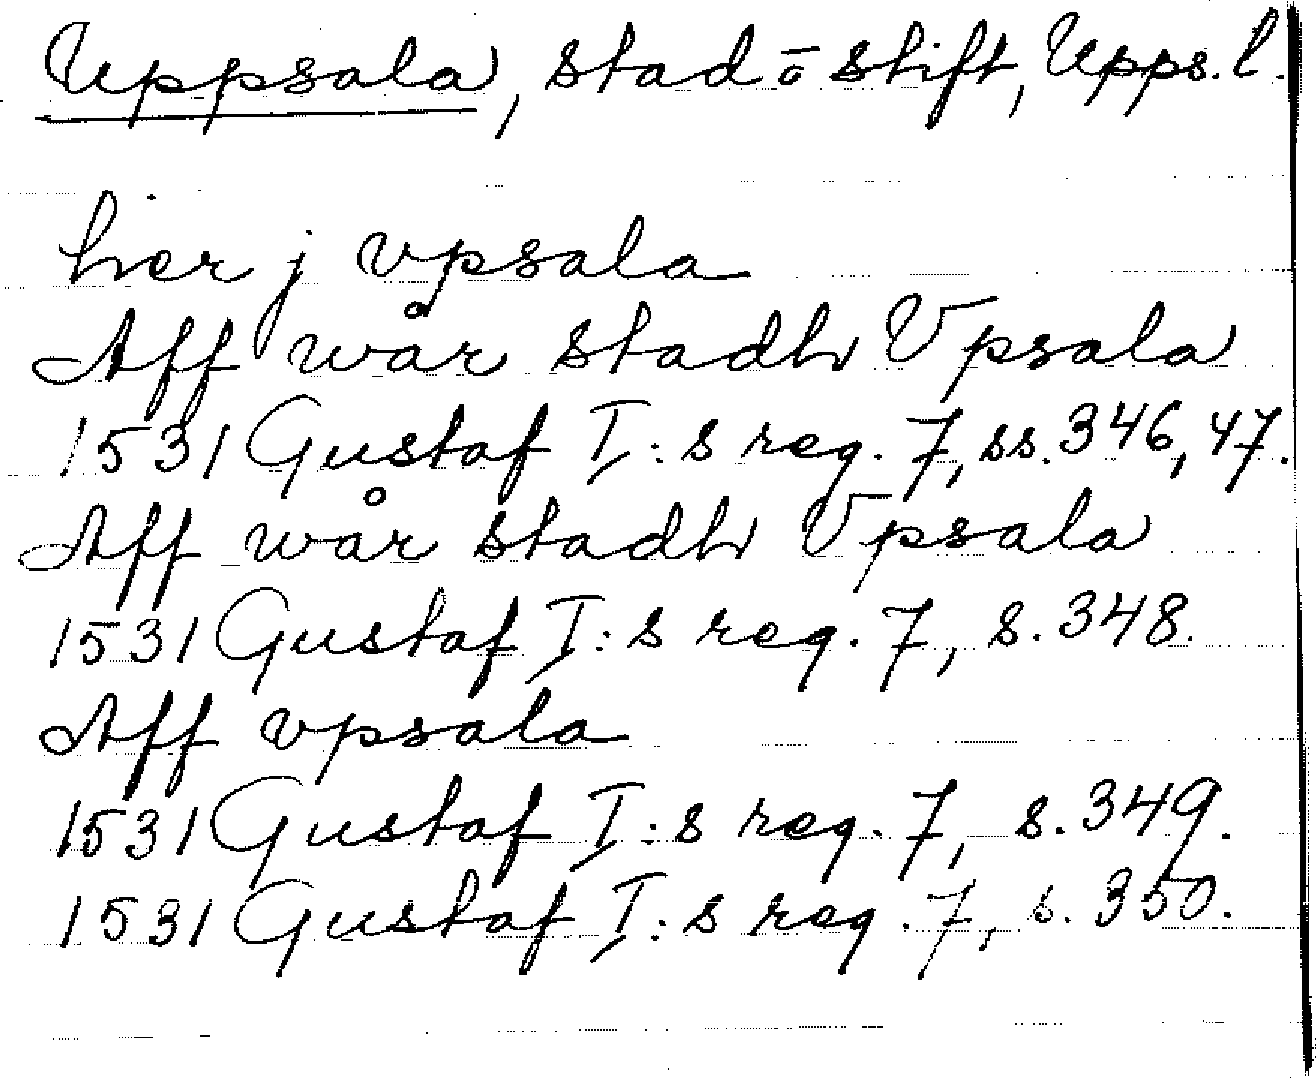 Uppsala, stad o stift, Upps. l.
hier j vpsala
Aff wår stadh Vpsala
1531 Gustaf I:s reg. 7, ss. 346, 47.
Aff wår stadh Vpsala
1531 Gustaf I:s reg. 7, s. 348.
Aff vpsala
1531 Gustaf I:s reg. 7, s. 349.
1531 Gustaf I:s reg. 7, s. 350.